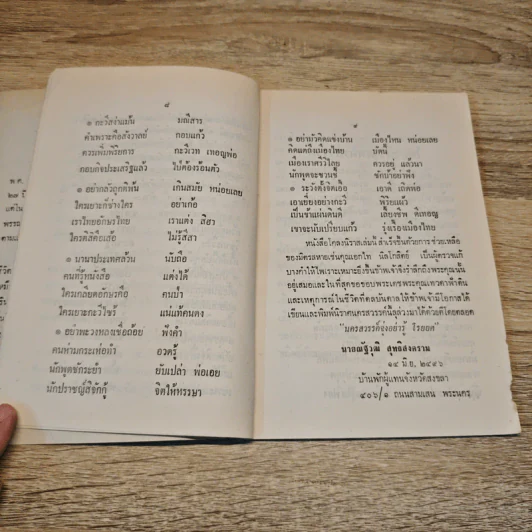 พ.ศ.
๘
๑ กะวีสง่าแม้น มณีสาร
คำเพราะคือสังวาลย์ กอบแก้ว
ควรเพิ่มพิริยการ กะวีเวท เทอญพ่อ
กอบกิจประเสริฐแล้ว ไป่ต้องร้อนตัว
๑ อย่าถลำถูกคนัน เกินสมัย หน่อยเลย
ใครเยาะก็ช่างใคร อย่าเก้อ
เราไทยอักษรไทย เราแต่ง สิฮา
ใครติสิคือเส้อ ไม่รู้สีสา
๑ นานาประเทศล้วน นับถือ
คนที่รู้หนังสือ แต่งได้
ใครเกลียดอักษรคือ คนป่า
ใครเยาะกะวีไซร้ แน่แท้คนดง
๑ อย่าพะวงหลงเชื่อถ้อย พึงคำ
คนห่ามกระเพ่อทำ อวดรู้
นักพูดซักกระยำ ยับเปล่า พ่อเอย
นักปราชญ์สิจักกู้ จิตให้หรรษา
๙
๑ อย่ามัวคิดแข่งบ้าน เมืองไหน หน่อยเลย
คิดแต่ถึงเมืองไทย บัดนี้
เมืองเราศรีวิไลย ควรอยู่ แล้วนา
นักพูดจะชวนชี้ ชักบ้าอย่าพึง
๑ ระวังตั้งจิตเอื้อ เอาดี เถิดพ่อ
เอาเยี่ยงอย่างกะวี พร้อยแผ้ว
เป็นข้าแผ่นดินดี เลี้ยงชาพ ดีเทอญ
เขาจะนับเปรียบแก้ว รุ่งเรืองเมืองไทย
หนังสือโคลงนิราสเล่มนี้ สำเร็จขึ้นด้วยการ ช่วยเหลือ
ของมิตรสหายเช่นคุณเอนก นิลโกสิตย์ เป็นผู้ตรวจแก้
บางคำให้ไพเราะเหมาะยิ่งขึ้นข้าพเจ้าจึงรำลึกถึงพระคุณนั้น
อยู่เสมอและในที่สุดขอขอบพระเดชพระคุณเทวดาฟ้าดิน
และเหตุการณ์ในชีวิตที่ดลบันดาลให้ข้าพเจ้ามีโอกาสได้
เขียนและพิมพ์นิราศนครสวรรค์นี้ลุล่วงมาได้ด้วยดีโดยตลอด
"นครสวรรค์จุ่งอย่ารู้ โรยยล"
นายณัฐวุฒิ สุทธิสงคราม
๑๔ มิย, ๒๔๙๖
บ้านพักผู้แทนจังหวัดสงขลา
๔๐๖/๑ ถนนสามเสน พระนคร